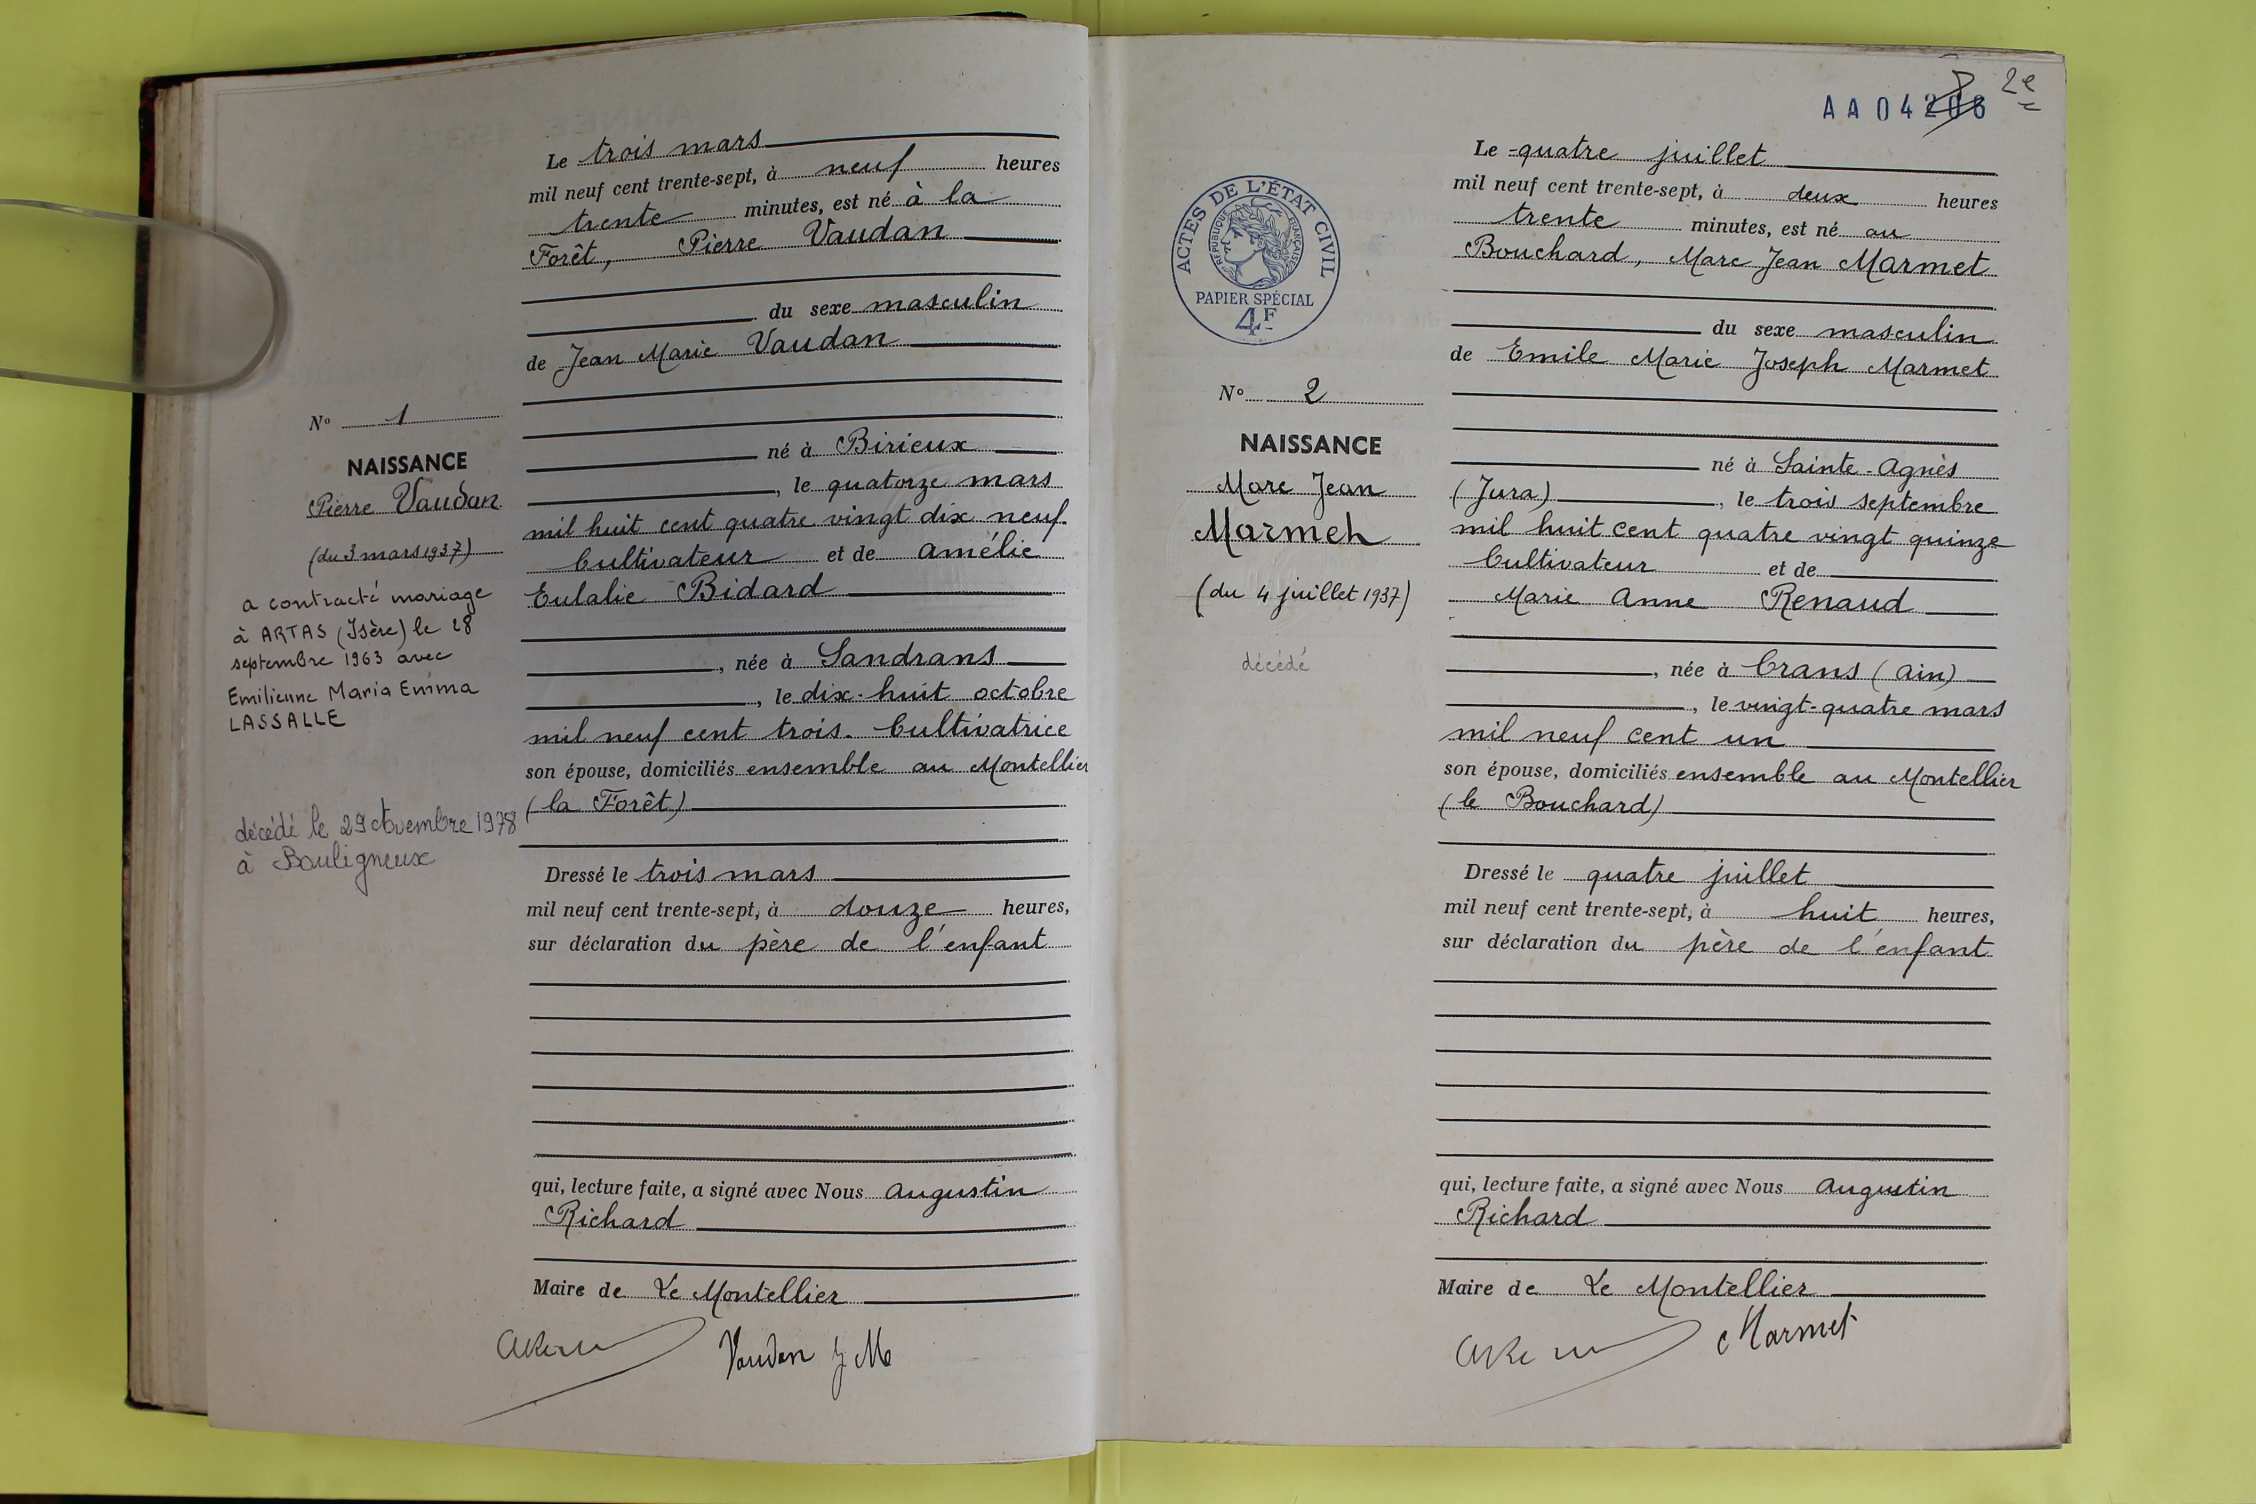 Le trois mars
mil neuf cent trente-sept, à neuf heures
trente minutes, est né à la
Forêt, Pierre Vaudan
du sexe masculin
de Jean Marie Vaudan
né à Birieux
, le quatorze mars
mil huit cent quatre vingt dix neuf
Cultivateur et de Amélie
Eulalie Bidard
, née à Sandrans
, le dix-huit octobre
mil neuf cent trois. Cultivatrice
son épouse, domiciliés ensemble au Montellier
(la Forêt)
Dressé le trois mars
mil neuf cent trente-sept, à douze heures,
sur déclaration du père de l'enfant
qui, lecture faite, a signé avec Nous Augustin
Richard
Maire de Le Montellier
Vaudan J M
No 1
NAISSANCE
Pierre Vaudan
(du 3 mars 1937)
a contracté mariage
à ARTAS (Isère) le 28
septembre 1963 avec
Emilienne Maria Emma
LASSALLE
décédé le 29 1978
à Bouligneux
AA 04 2e
ACTES DE L'ÉTAT CIVIL
RÉPUBLIQUE FRANÇAISE
PAPIER SPÉCIAL
4F
No 2
NAISSANCE
Marc Jean
Marmet
(du 4 juillet 1937)
décédé
Le quatre juillet
mil neuf cent trente-sept, à deux heures
trente minutes, est né au
Bouchard, Marc Jean Marmet
du sexe masculin
de Emile Marie Joseph Marmet
né à Sainte-Agnès
(Jura), le trois septembre
mil huit cent quatre vingt quinze
Cultivateur et de
Marie Anne Renaud
, née à Crans (Ain)
, le vingt-quatre mars
mil neuf cent un
son épouse, domiciliés ensemble au Montellier
(le Bouchard)
Dressé le quatre juillet
mil neuf cent trente-sept, à huit heures,
sur déclaration du père de l'enfant
qui, lecture faite, a signé avec Nous Augustin
Richard
Maire de Le Montellier
Marmet